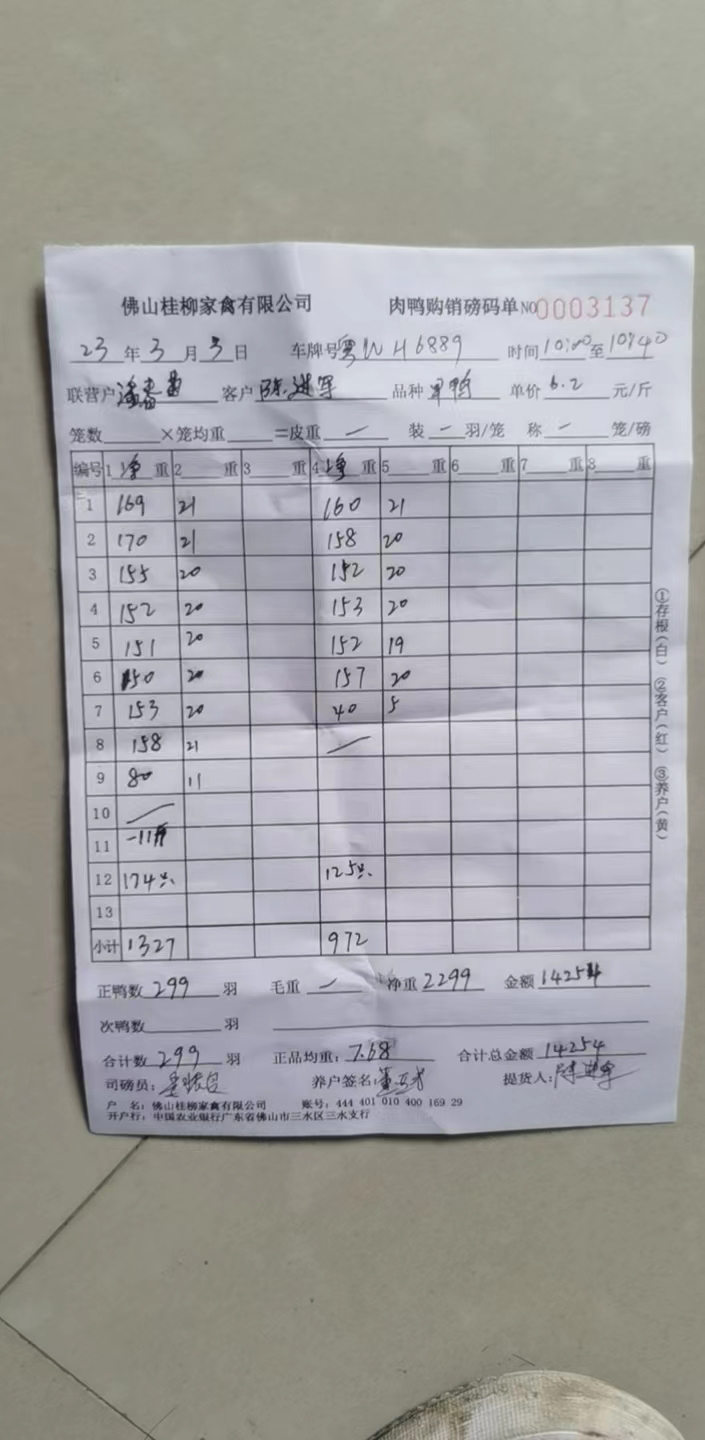 佛山桂柳家禽有限公司 肉鸭购销磅码单 NO 0003137
23 年 3 月 3 日 车牌号 粤W H6889 时间 10:00 至 10:40
联营户 客户 陈进军 品种 单价 6.2 元/斤
笼数 ×笼均重 =皮重 一 装 一 羽/笼 称 一 笼/磅
编号 1 净 重 2 重 3 重 4 净 重 5 重 6 重 7 重 8 重
1 169 21 160 21
2 170 21 158 20
3 155 20 152 20
4 152 20 153 20
5 151 20 152 19
6 150 20 157 20
7 153 20 40 5
8 158 21
9 80 11
10
11 -11斤
12 174只 125只
13
小计 1327 972
正鸭数 299 羽 毛重 一 净重 2299 金额 14254
次鸭数 羽
合计数 299 羽 正品均重: 7.68 合计总金额 14254
司磅员: 养户签名: 提货人:
户 名: 佛山桂柳家禽有限公司 账号: 444 401 010 400 169 29
开户行: 中国农业银行广东省佛山市三水区三水支行
①存根(白) ②客户(红) ③养户(黄)